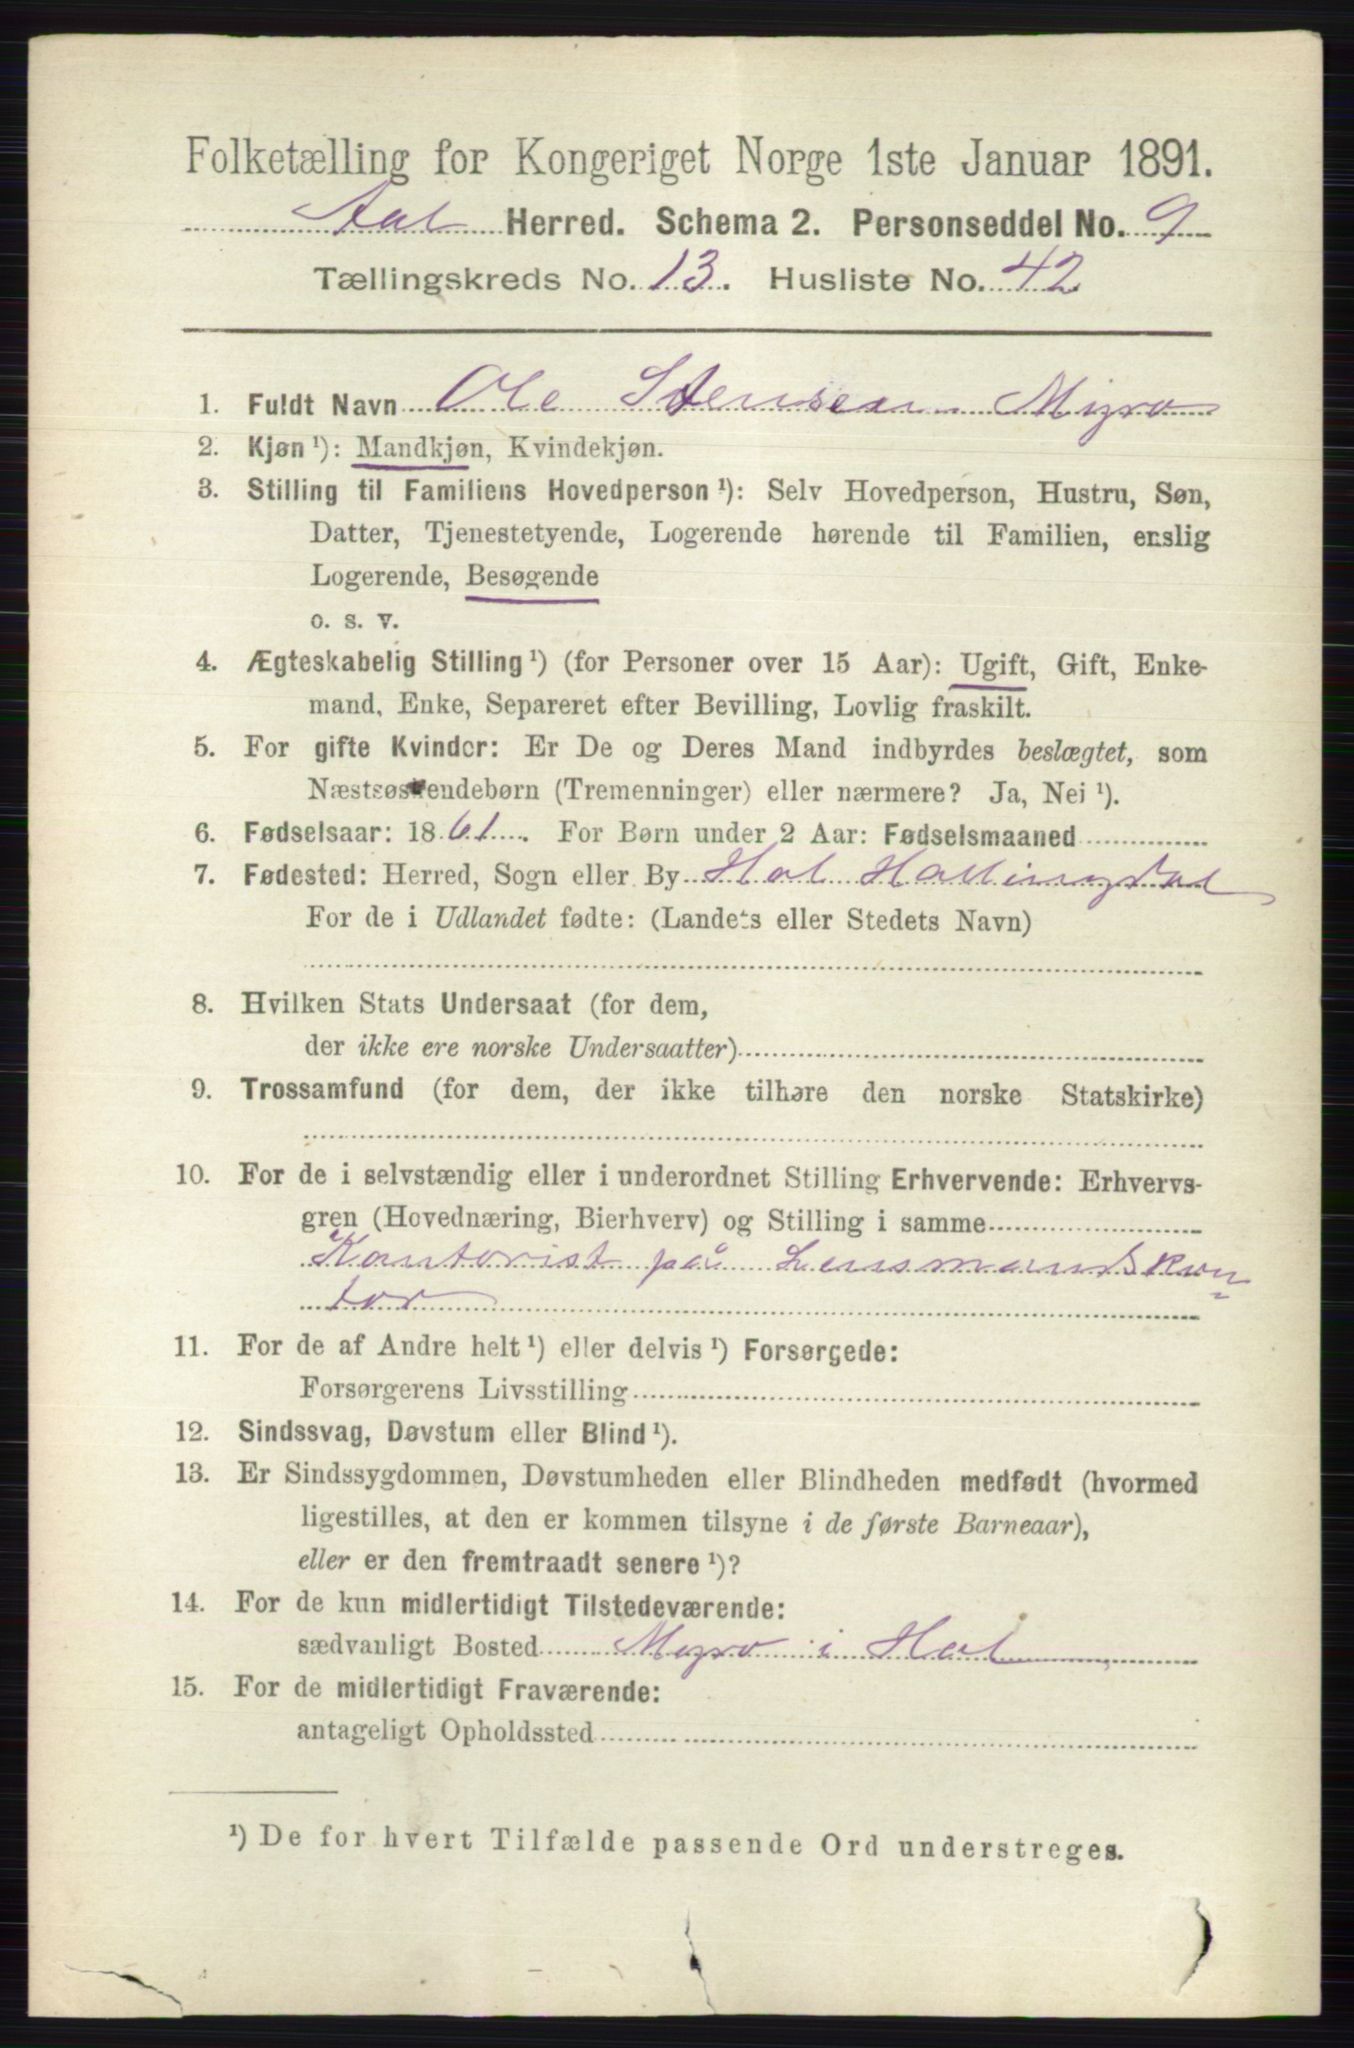 Folketælling for Kongeriget Norge 1ste Januar 1891.
Aal Herred. Schema 2. Personseddel No. 9
Tællingskreds No. 13. Husliste No. 42
1. Fuldt Navn Ole Stensen Myro
2. Kjøn ¹): Mandkjøn, Kvindekjøn.
3. Stilling til Familiens Hovedperson ¹): Selv Hovedperson, Hustru, Søn,
Datter, Tjenestetyende, Logerende hørende til Familien, enslig
Logerende, Besøgende
o. s. v.
4. Ægteskabelig Stilling ¹) (for Personer over 15 Aar): Ugift, Gift, Enke-
mand, Enke, Separeret efter Bevilling, Lovlig fraskilt.
5. For gifte Kvinder: Er De og Deres Mand indbyrdes beslægtet, som
Næstsøskendebørn (Tremenninger) eller nærmere? Ja, Nei ¹).
6. Fødselsaar: 1861. For Børn under 2 Aar: Fødselsmaaned
7. Fødested: Herred, Sogn eller By Hol Hallingdal
For de i Udlandet fødte: (Landets eller Stedets Navn)
8. Hvilken Stats Undersaat (for dem,
der ikke ere norske Undersaatter)
9. Trossamfund (for dem, der ikke tilhøre den norske Statskirke)
10. For de i selvstændig eller i underordnet Stilling Erhvervende: Erhvervs-
gren (Hovednæring, Bierhverv) og Stilling i samme
Kontorist på Lensmandskon
tor
11. For de af Andre helt ¹) eller delvis ¹) Forsørgede:
Forsørgerens Livsstilling
12. Sindssvag, Døvstum eller Blind ¹).
13. Er Sindssygdommen, Døvstumheden eller Blindheden medfødt (hvormed
ligestilles, at den er kommen tilsyne i de første Barneaar),
eller er den fremtraadt senere ¹)?
14. For de kun midlertidigt Tilstedeværende:
sædvanligt Bosted Myro i Hol
15. For de midlertidigt Fraværende:
antageligt Opholdssted
¹) De for hvert Tilfælde passende Ord understreges.